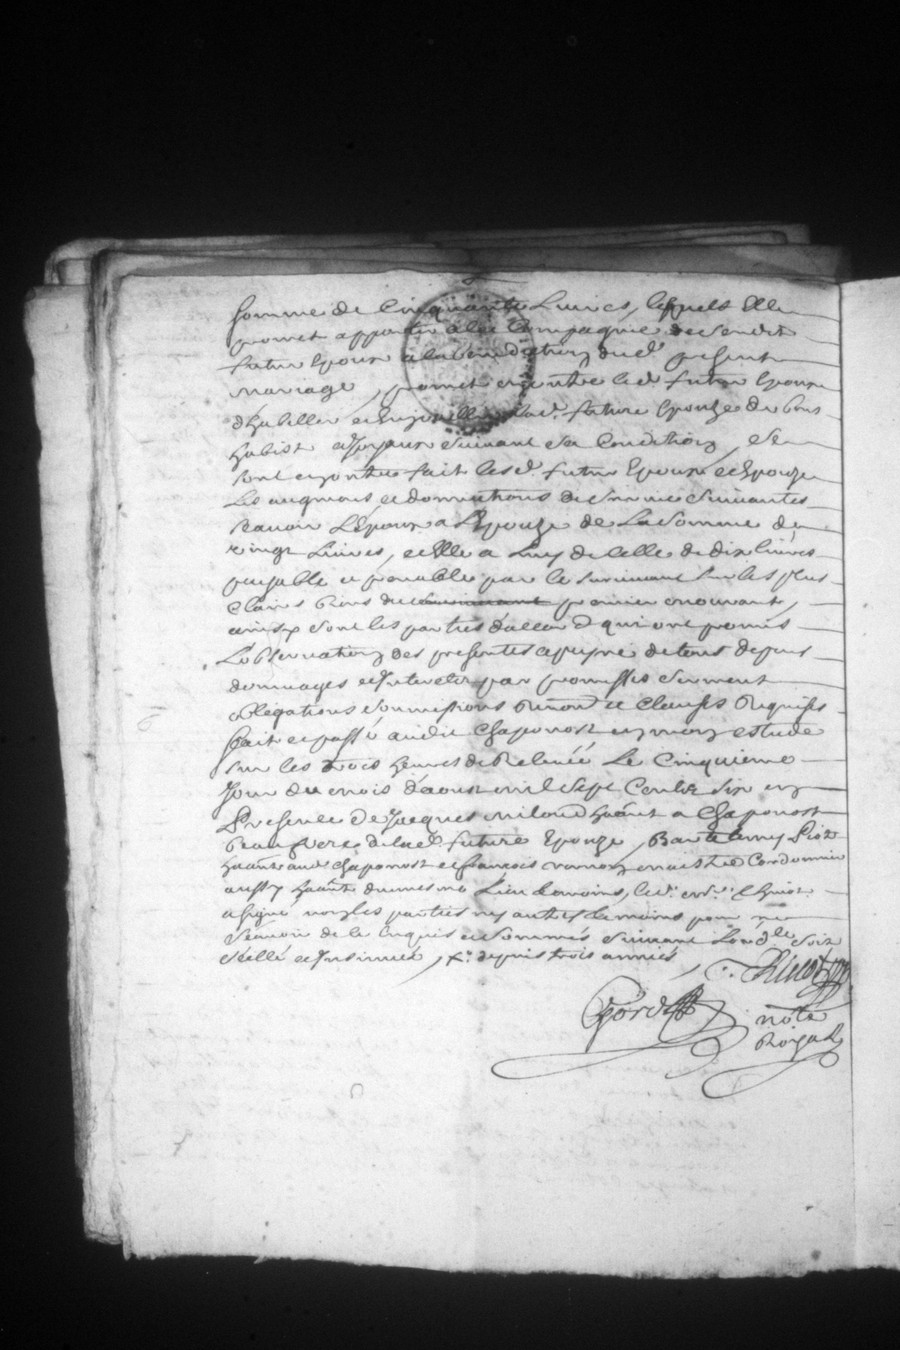 somme de Cinquante Livres, lesquels Elle
promet apporter a la Compagnie de sondit
futur Epoux a la benediction dud. present
mariage, promet en outre led. futur Epoux
d'habiller et enjoyeller lad. future Epouze de bons
habist et Joyaux suivant sa Condition, se
sont en outre fait lesd. futur Epoux et Epouze
Les augmens et donnations de survie Suivantes
scavoir L'Epoux a L'Epouze de La Somme de
vingt Livres, et Elle a Luy de Celle de dix livres
payable et prenable par le survivant sur les plus
Clairs biens du premier mourant,
ainsy sont les parties d'accord qui ont promis
L'observation des presentes a peyne de tous depens
dommages et Interests par promesses serment
obligations soumissions Renon. et Clauses Requises
fait et passé audit Chaponost en mon estude
sur les trois heures de Relevée Le Cinquieme
Jour du mois d'aoust mil Sept Cents six en
Presence de Jacques milond hañt a Chaponost
beaufrere de lad. future Epouze, Barthelemy Piot
haant aud. Chaponost et francois maitre Cordonnier
aussy haant du mesme Lieu temoins, led.
a signé non les parties ny autres temoins pour ne
scavoir de ce Enquis et Sommés Suivant L'ord. le soit
scellé et Insinué, x. depuis trois années
not.e
Royal